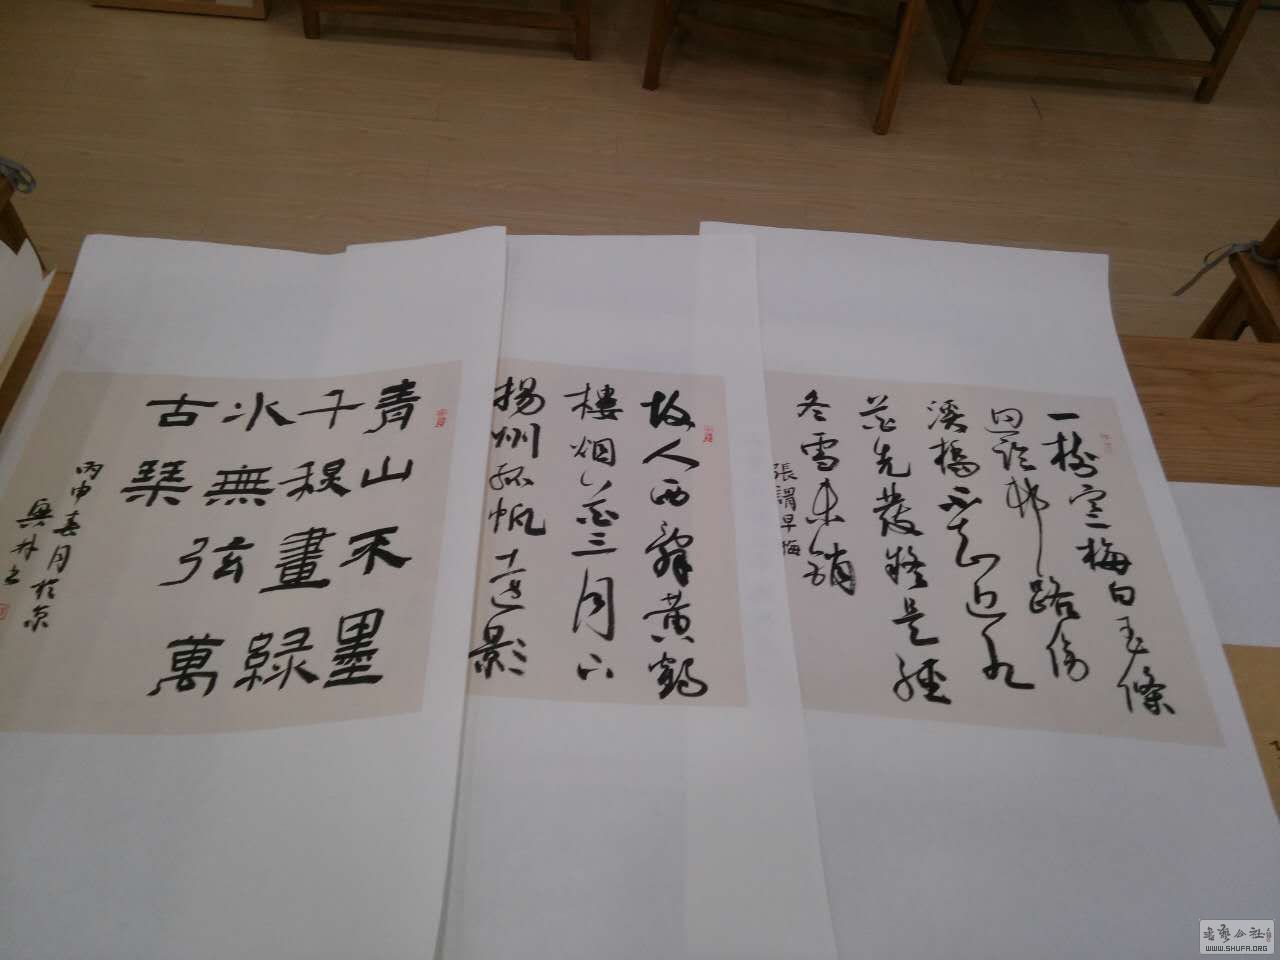 一樹寒梅白玉條
迥臨村路傍
溪橋不知近水
花先發疑是經
冬雪未銷
張謂早梅
故人西辭黃鶴
樓烟花三月下
揚州孤帆遠影
青山不墨
千秋畫綠
水無弦萬
古琴
丙申春月於京
书艺公社
WWW.SHUFA.ORG